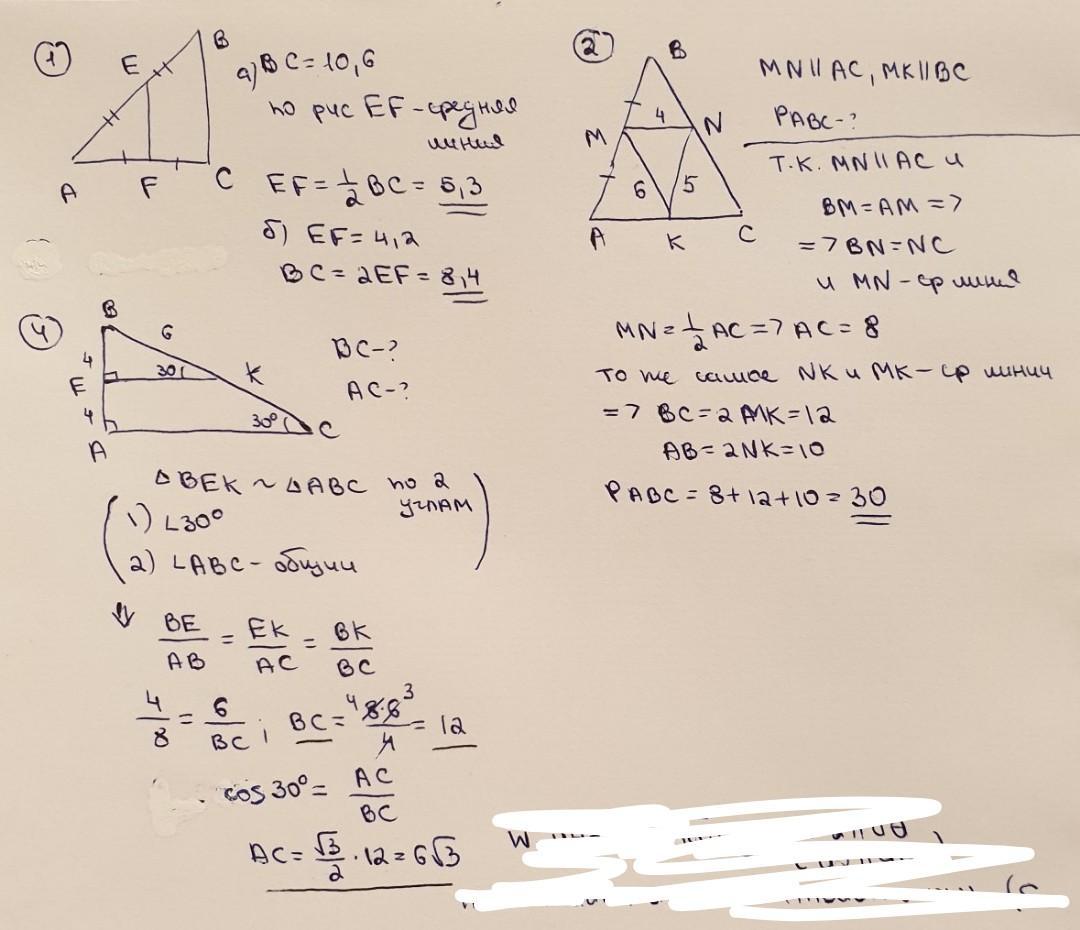 1
B
E
A
F
C
а) BC = 10,6
по рис EF - средняя
линия
EF = 1/2 BC = 5,3
б) EF = 4,2
BC = 2EF = 8,4
2
B
M
4
N
6
5
A
K
C
MN || AC, MK || BC
PABC - ?
Т.К. MN || AC и
BM = AM =>
=> BN = NC
и MN - ср линия
MN = 1/2 AC => AC = 8
то же самое NK и MK - ср линии
=> BC = 2MK = 12
AB = 2NK = 10
PABC = 8 + 12 + 10 = 30
4
B
6
4
E
30
K
4
30°
A
C
BC - ?
AC - ?
△BEK ~ △ABC по 2
углам
1) ∠30°
2) ∠ABC - общий
⇓
BE/AB = EK/AC = BK/BC
4/8 = 6/BC ; BC = = 12
cos 30° = AC/BC
AC = √3/2 · 12 = 6√3